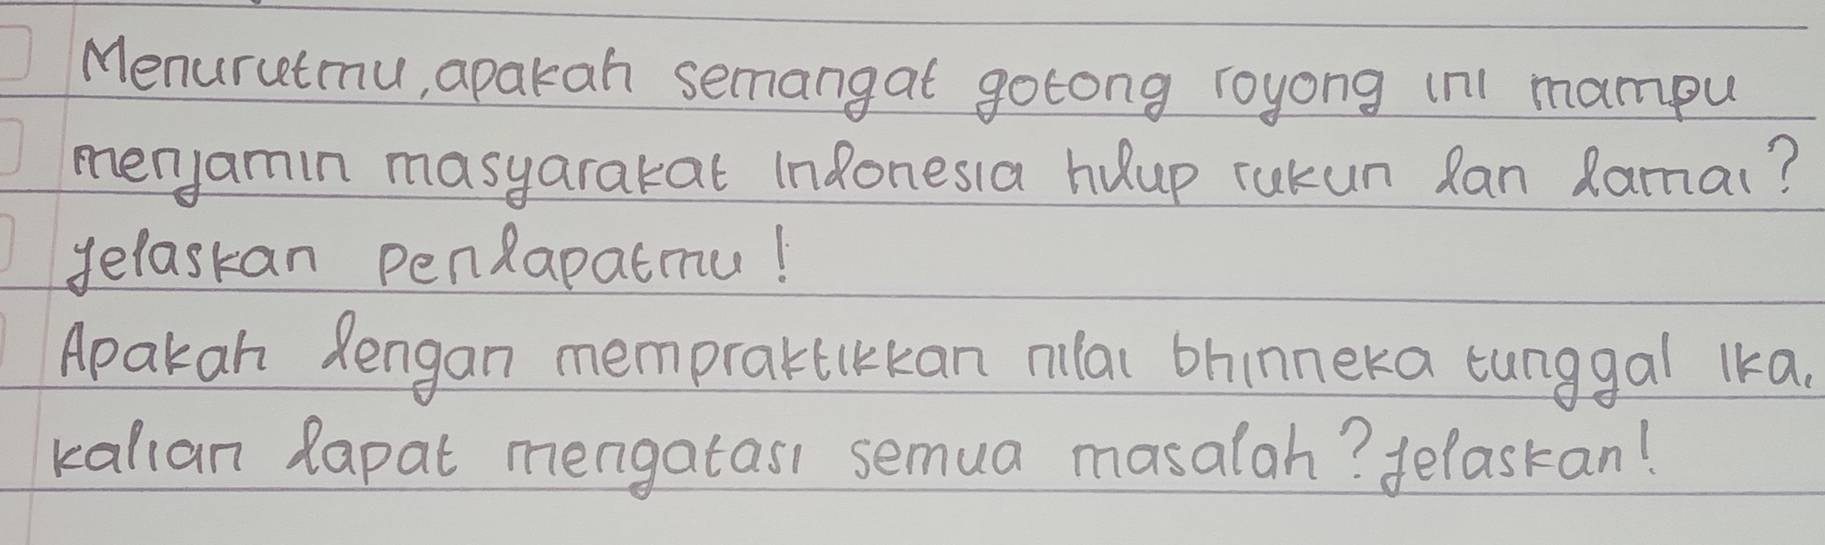 Menurutmu, apakah semangat gotong royong ini mampu
menjamin masyarakat Indonesia hidup rukun dan damai?
Jelaskan pendapatmu!
Apakah dengan mempraktikkan nilai bhinneka tunggal ika,
kalian dapat mengatasi semua masalah? Jelaskan!